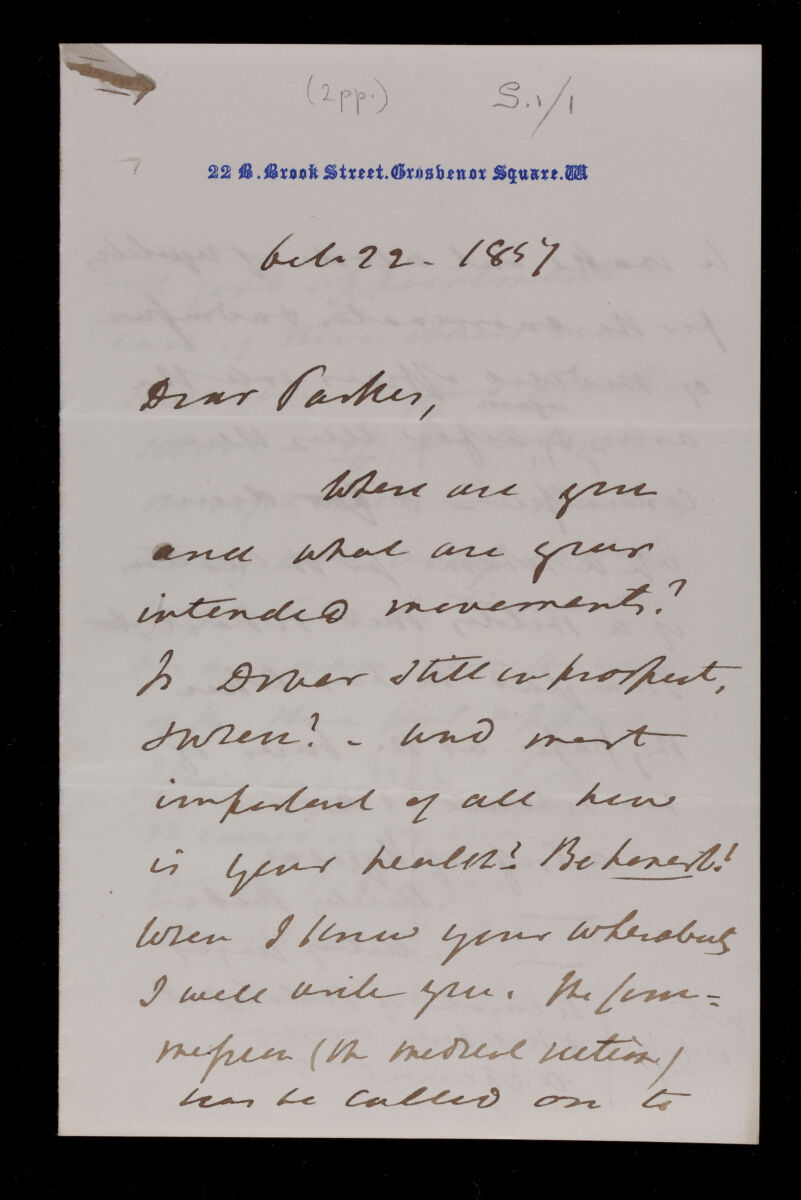 (2pp.) S.1/1
22 B. Brook Street. Grosvenor Square. W
Oct 22 - 1857
Dear Parkes,
Where are you
and what are your
intended movements?
Is Dover still in prospect,
when? - and most
important of all how
is your health? Be honest!
When I know your whereabouts
I will write you. The Com=
mission (the medical section)
has been called on to